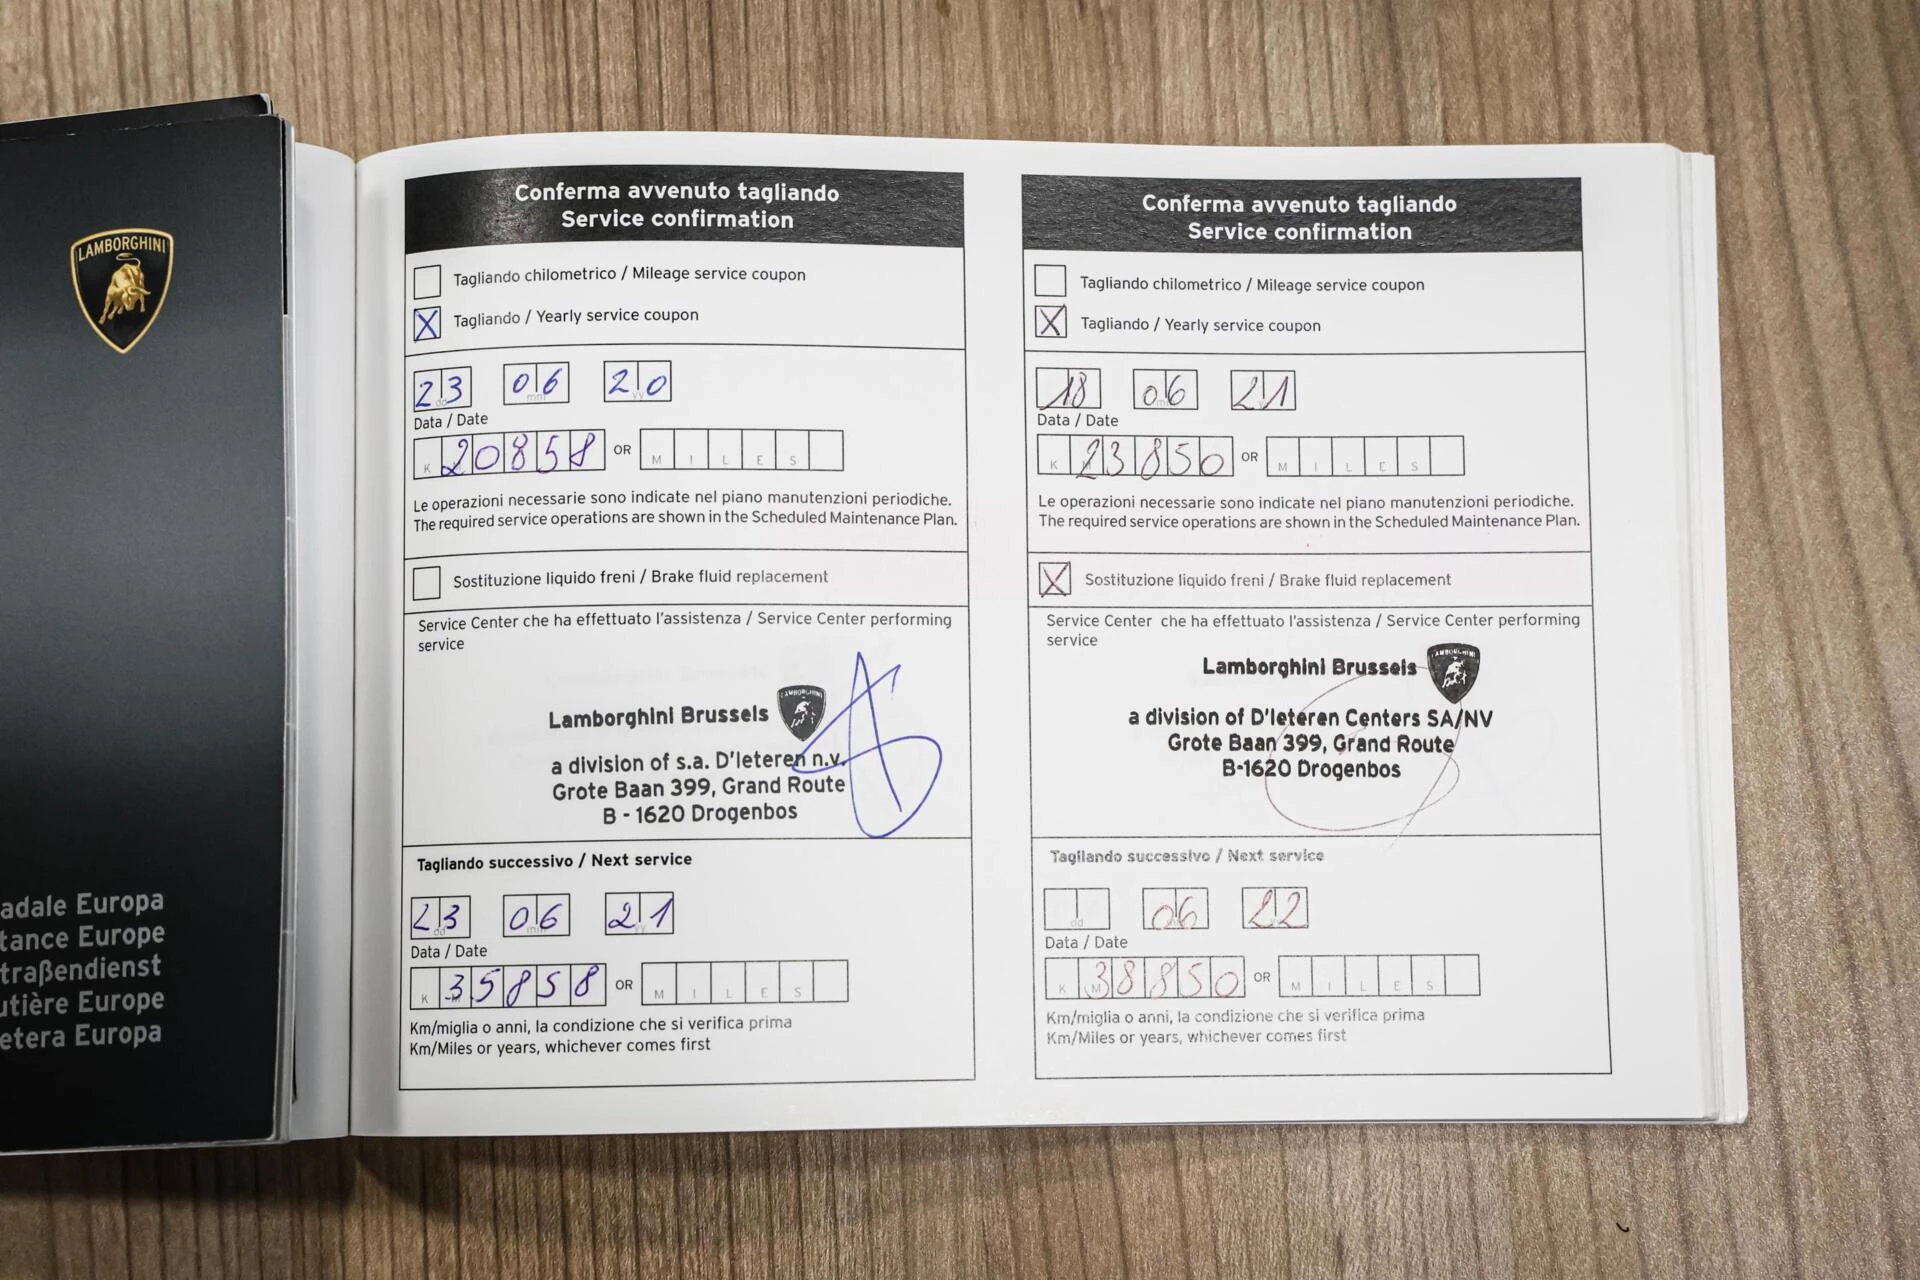 LAMBORGHINI
adale Europa
tance Europe
traßendienst
utière Europe
etera Europa
Conferma avvenuto tagliando
Service confirmation
Tagliando chilometrico / Mileage service coupon
X Tagliando / Yearly service coupon
23 06 20
dd mm yy
Data / Date
K M 20858 OR M I L E S
Le operazioni necessarie sono indicate nel piano manutenzioni periodiche.
The required service operations are shown in the Scheduled Maintenance Plan.
Sostituzione liquido freni / Brake fluid replacement
Service Center che ha effettuato l'assistenza / Service Center performing
service
Lamborghini Brussels
LAMBORGHINI
a division of s.a. D'Ieteren n.v.
Grote Baan 399, Grand Route
B - 1620 Drogenbos
Tagliando successivo / Next service
23 06 21
dd mm yy
Data / Date
K M 35858 OR M I L E S
Km/miglia o anni, la condizione che si verifica prima
Km/Miles or years, whichever comes first
Conferma avvenuto tagliando
Service confirmation
Tagliando chilometrico / Mileage service coupon
X Tagliando / Yearly service coupon
18 06 21
Data / Date
K M 23850 OR M I L E S
Le operazioni necessarie sono indicate nel piano manutenzioni periodiche.
The required service operations are shown in the Scheduled Maintenance Plan.
X Sostituzione liquido freni / Brake fluid replacement
Service Center che ha effettuato l'assistenza / Service Center performing
service
Lamborghini Brussels
LAMBORGHINI
a division of D'Ieteren Centers SA/NV
Grote Baan 399, Grand Route
B-1620 Drogenbos
Tagliando successivo / Next service
06 22
dd mm
Data / Date
K M 38850 OR M I L E S
Km/miglia o anni, la condizione che si verifica prima
Km/Miles or years, whichever comes first